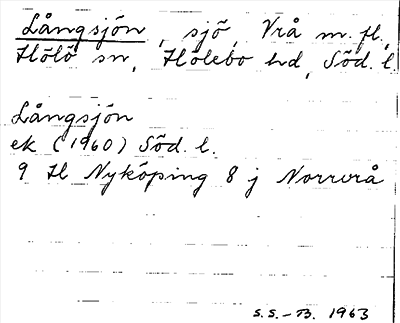 Långsjön, sjö, Vrå m. fl.,
Hölö sn, Hölebo hd, Söd. l.
Långsjön
ek (1960) Söd. l.
9 H Nyköping 8 j Norrvrå
S.S.-B. 1963